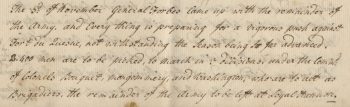 the 3d of November General Forbes came up with the reminder of
the Army, and Every thing is prepairing for a vigorous push against
Fort du Quesne, not withstanding the Season being so far advanced.
2,400 men are to be picked to march in 3 Divisions, under the Comd.
of Colonels Bouquet Montgommery, and Washington, who are to act as
Brigadiers, the remainder of the Army to be left at Loyal Hannon.